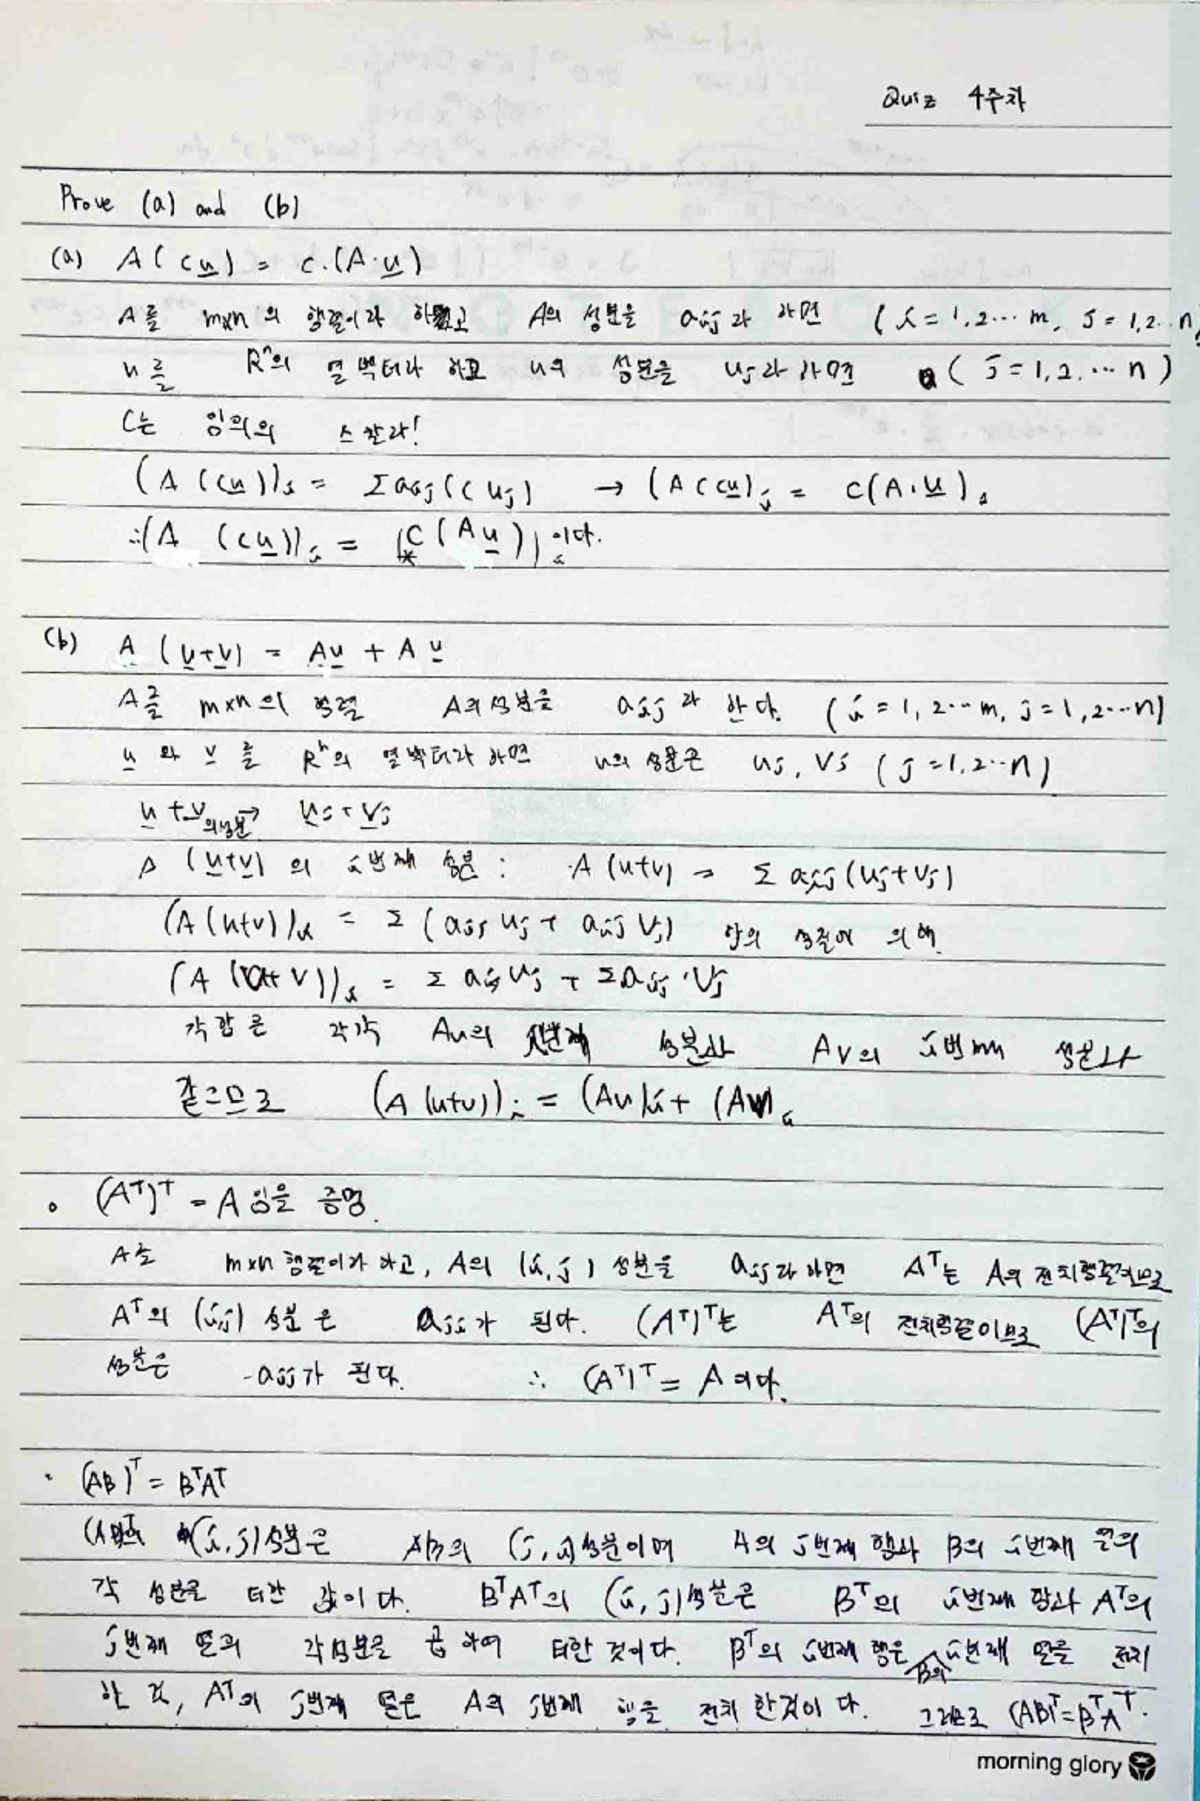 Quiz 4주차
Prove (a) and (b)
(a) A(cu) = c.(A.u)
A를 m×n의 행렬이라 하고 A의 성분을 aij라 하면 (i=1,2… m, j=1,2..n)
u를 Rⁿ의 열벡터라 하고 u의 성분을 uj라 하면 (j=1,2,…n)
C는 임의의 스칼라!
(A(cu))i = Σaij(c uj) → (A(cu))i = c(A.u)i
∴(A (cu))i = (C(Au))i 이다.
(b) A (u+v) = Au + Av
A를 m×n의 행렬 A의 성분을 aij라 한다. (i=1,2…m, j=1,2…n)
u 와 v를 Rⁿ의 열벡터라 하면 u의 성분은 uj, vj (j=1,2..n)
u+v의성분→ uj+vj
A (u+v)의 i번째 성분: A(u+v) = Σ aij(uj+vj)
(A(u+v))i = Σ(aij uj + aij vj) 합의 성질에 의해.
(A(u+v))i = Σ aij uj + Σaij·vj
각 합은 각각 Au의 i번째 성분과 Av의 i번째 성분과
같으므로 (A(u+v))i = (Au)i + (Av)i
◦ (Aᵀ)ᵀ = A 임을 증명.
A를 m×n 행렬이라 하고, A의 (i,j) 성분을 aij라 하면 Aᵀ는 A의 전치행렬이므로
Aᵀ의 (i,j) 성분은 aji가 된다. (Aᵀ)ᵀ는 Aᵀ의 전치행렬이므로 (Aᵀ)ᵀ의
성분은 aij가 된다. ∴ (Aᵀ)ᵀ = A 이다.
· (AB)ᵀ = BᵀAᵀ
(AB)ᵀ의 (i,j)성분은 AB의 (j,i)성분이며 A의 j번째 행과 B의 i번째 열의
각 성분을 더한 값이다. BᵀAᵀ의 (i,j)성분은 Bᵀ의 i번째 행과 Aᵀ의
j번째 열의 각성분을 곱하여 더한 것이다. Bᵀ의 i번째 행은 B의 i번째 열을 전치
한 것, Aᵀ의 j번째 열은 A의 j번째 행을 전치 한것이다. 그러므로 (AB)ᵀ=BᵀAᵀ.
morning glory